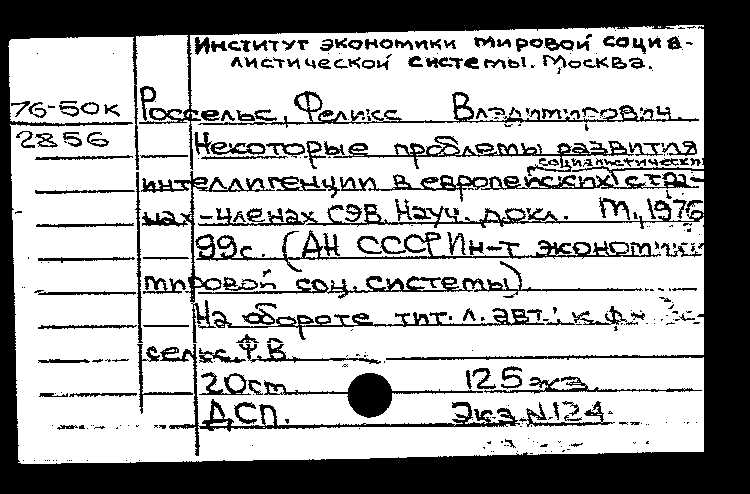 Институт экономики мировой социа-
листической системы. Москва.
76-50к Россельс, Феликс Владимирович.
2856
Некоторые проблемы развития
социалистических
интеллигенции в европейских стра-
нах-членах СЭВ. Науч. докл. М., 1976
99с. (АН СССР Ин-т экономики
мировой соц. системы).
На обороте тит. л. авт.: к.ф.н
сельс Ф.В.
20см. 125 экз.
ДСП. Экз. N124.